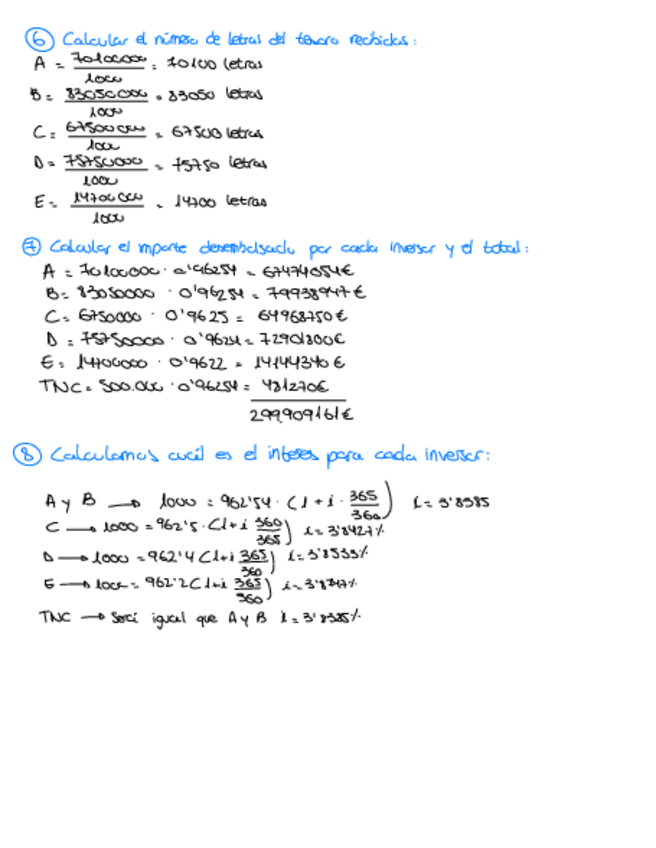 ⑥ Calcular el número de letras del tesoro recibidas:
A = 70100000 / 1000 = 70100 letras
B = 83050000 / 1000 = 83050 letras
C = 67500000 / 1000 = 67500 letras
D = 75750000 / 1000 = 75750 letras
E = 14700000 / 1000 = 14700 letras
⑦ Calcular el importe desembolsado por cada inversor y el total:
A = 70100000 · 0'96254 = 67474054€
B = 83050000 · 0'96254 = 79938947€
C = 6750000 · 0'9625 = 64968750€
D = 75750000 · 0'9624 = 72901800€
E = 14700000 · 0'9622 = 14144340€
TNC = 500.000 · 0'96254 = 481270€
299.909161€
⑧ Calculamos cuál es el interes para cada inversor:
A y B → 1000 = 962'54 · (1 + i · 365/360) i = 3'8385
C → 1000 = 962'5 · (1 + i 360/365) i = 3'8427%
D → 1000 = 962'4 (1+i 365/360) i = 3'8533%
E → 1000 = 962'2 (1+i 365/360) i = 3'8747%
TNC → Será igual que A y B i = 3'8385%